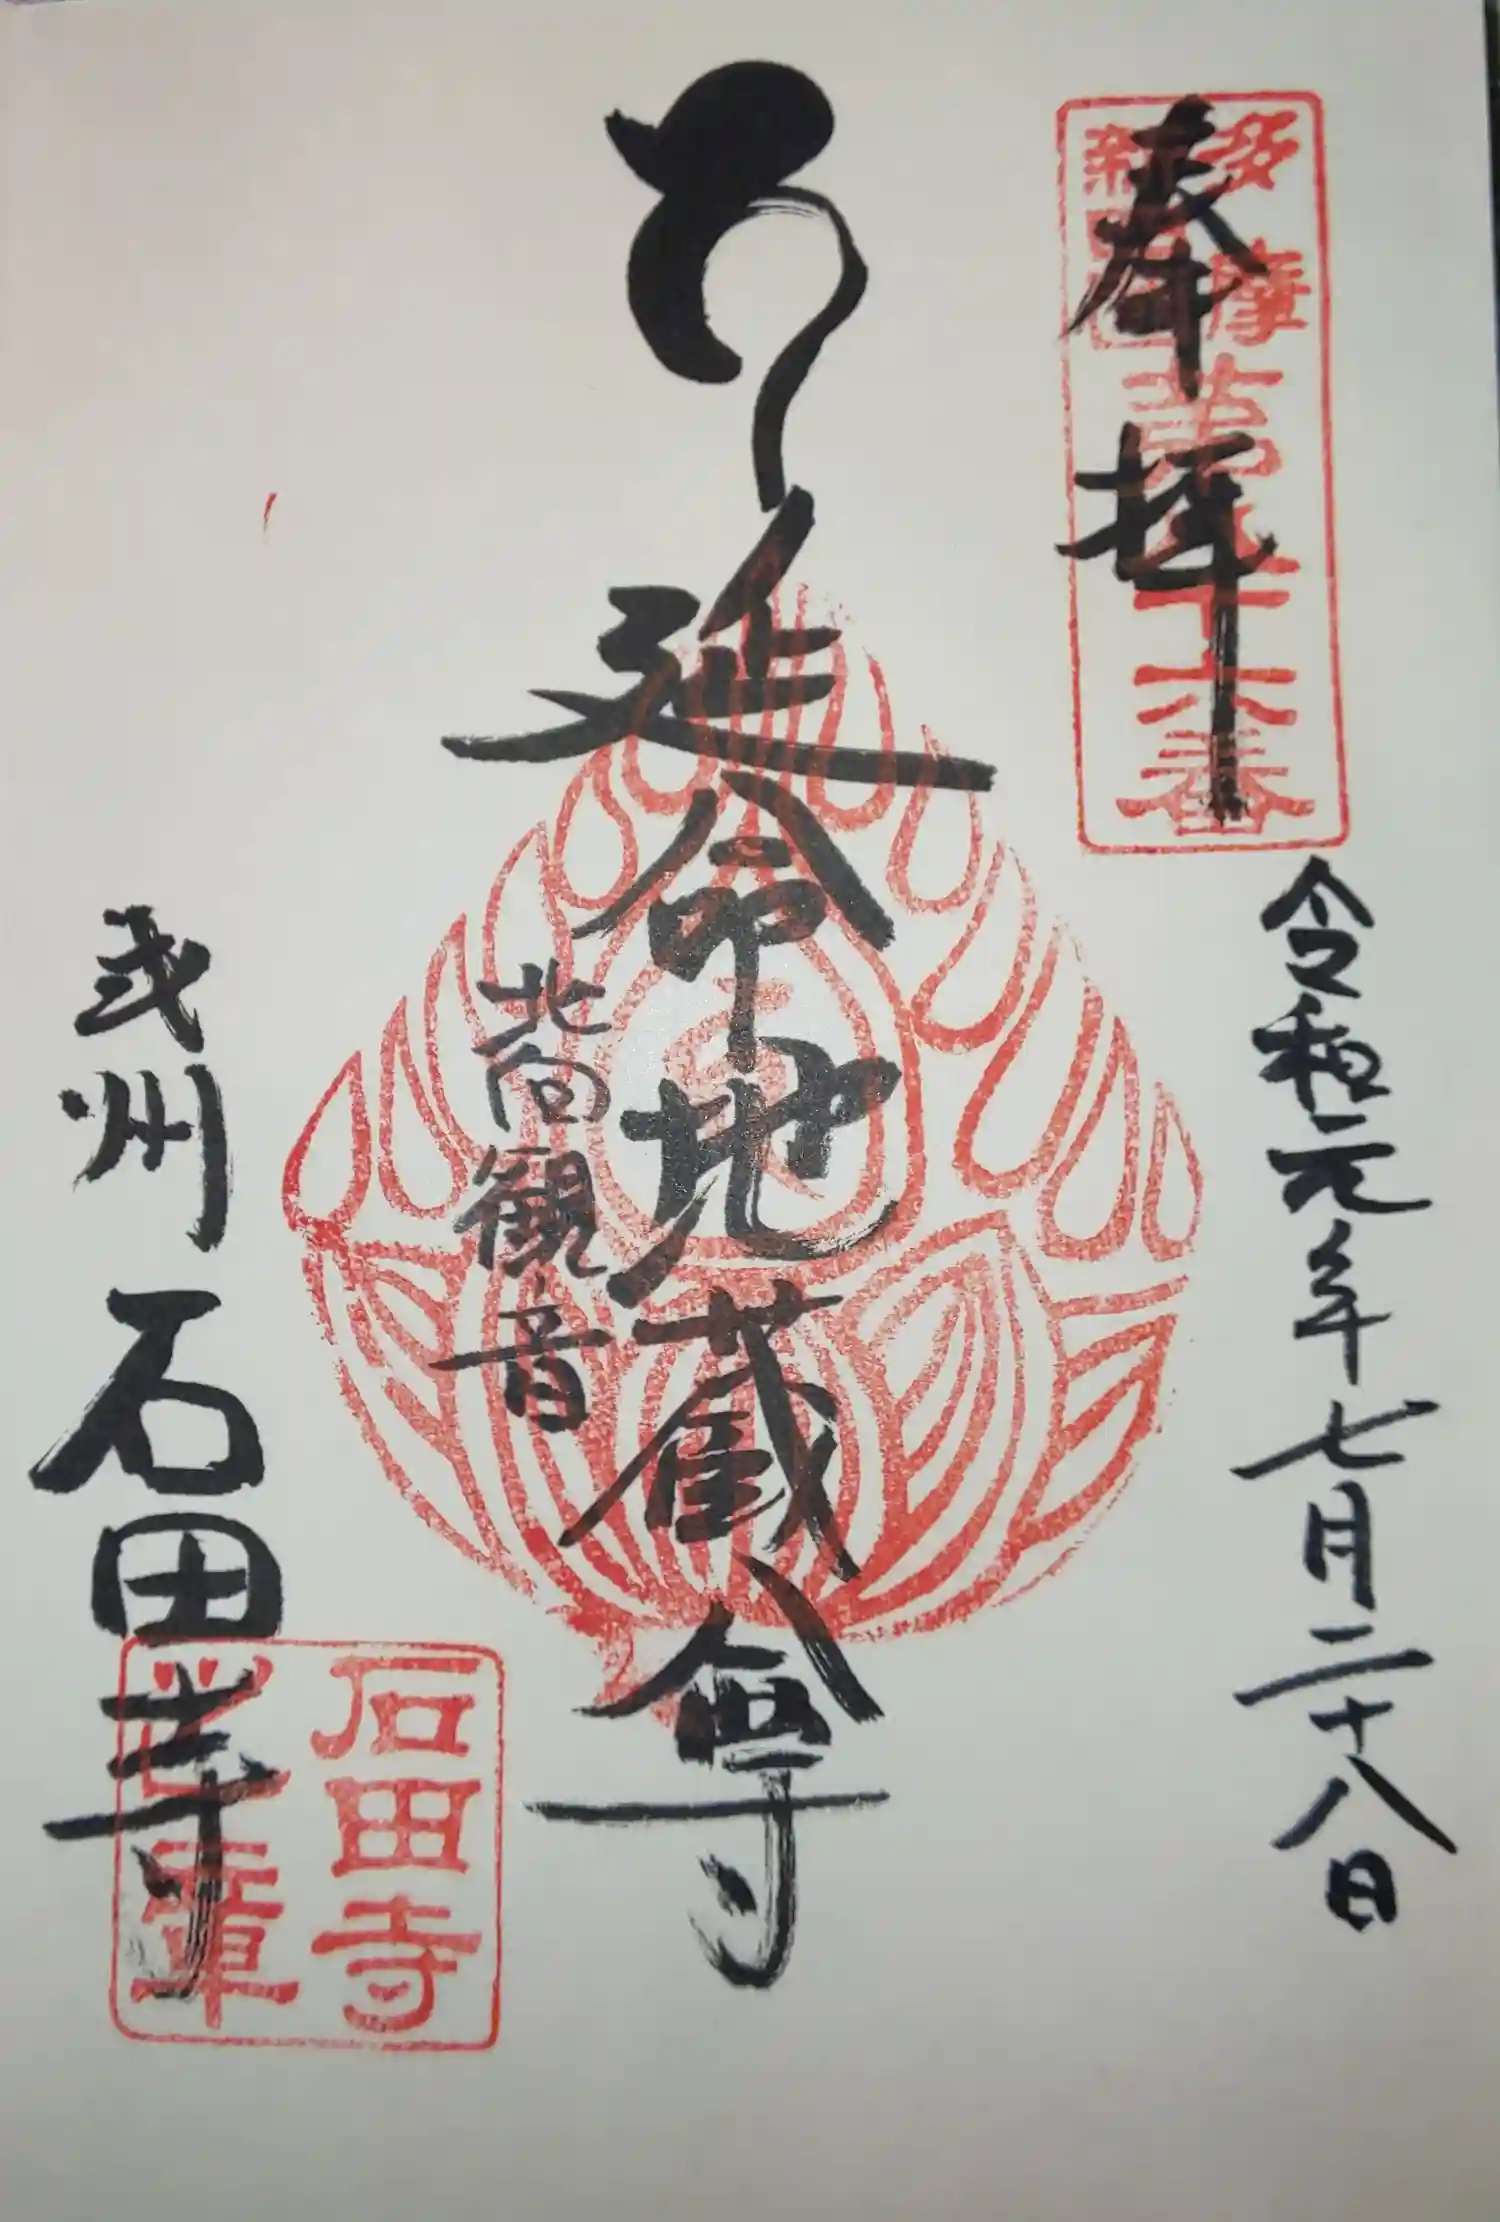 奉拝
多摩
新四国
第七十六番
令和元年七月二十八日
延命地蔵尊
北向観音
武州 石田寺
石田寺
之章